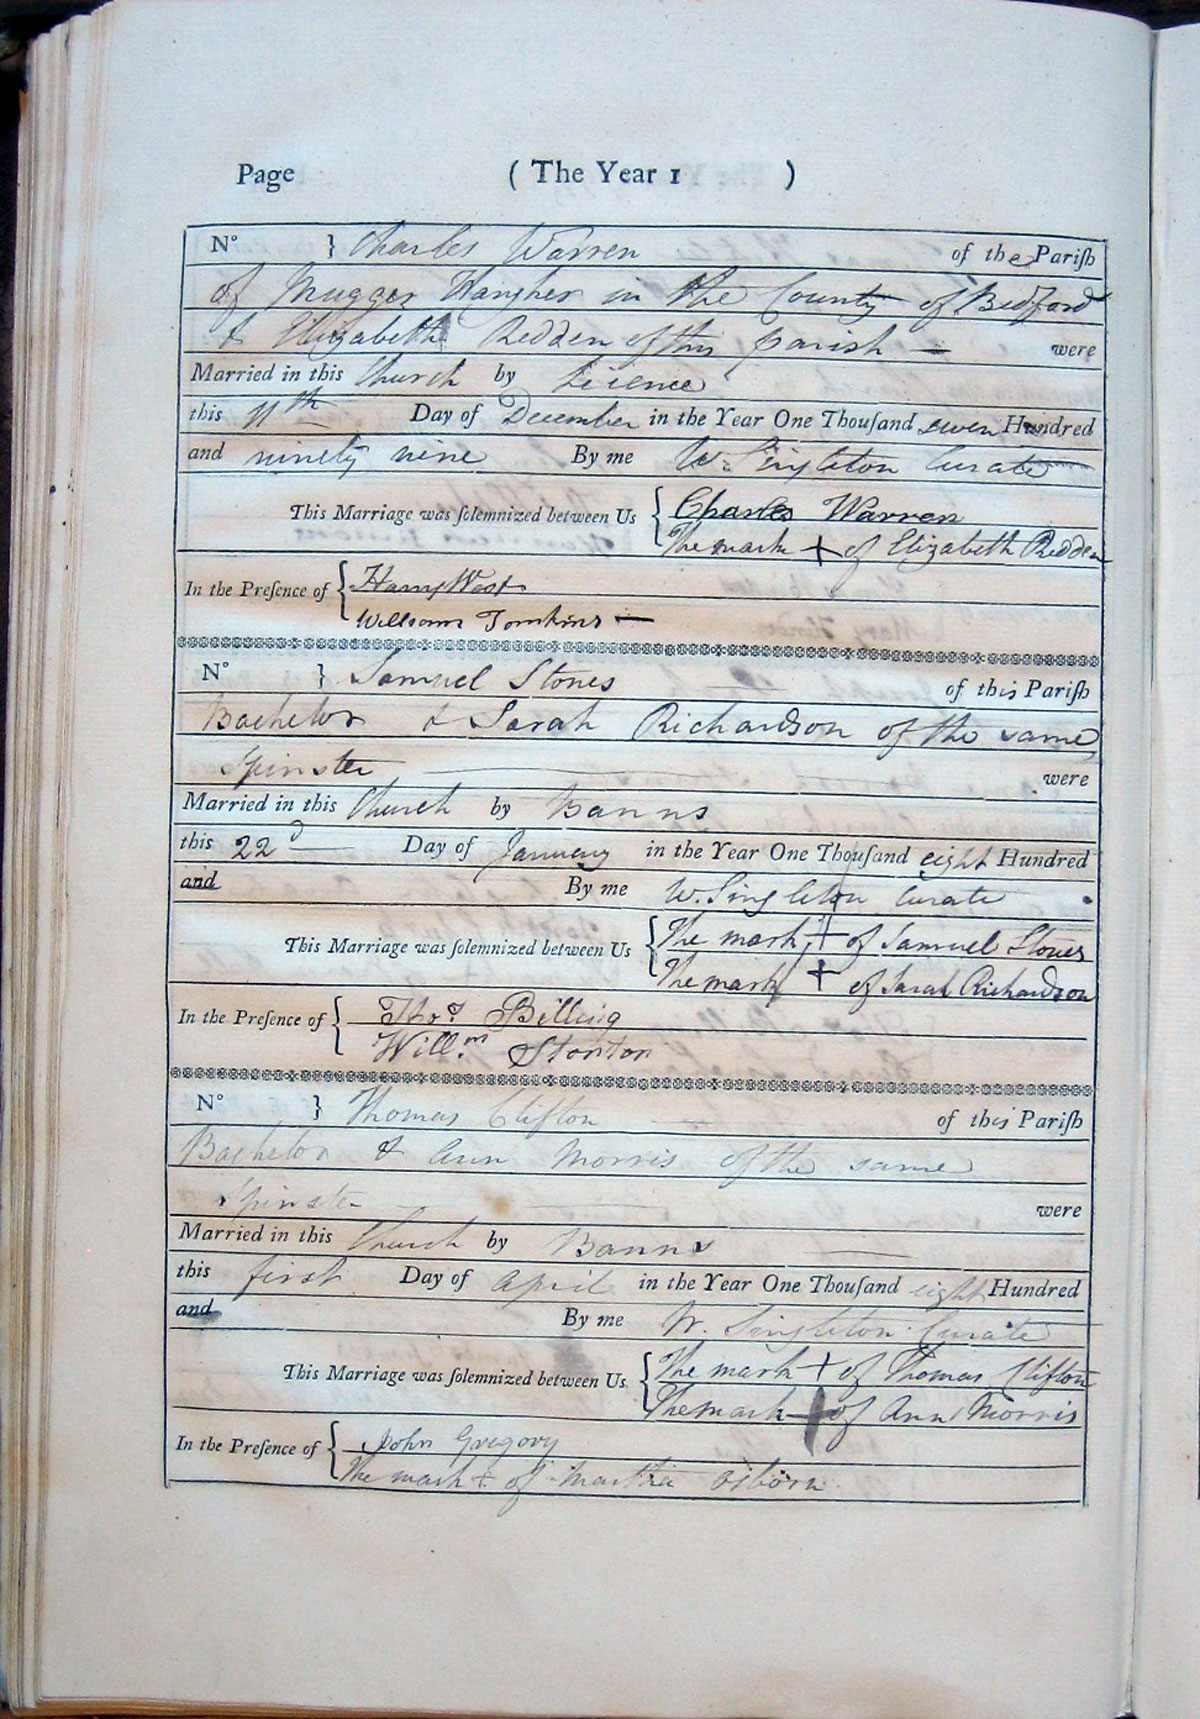 Page ( The Year 1 )
N° } Charles Warren of the Pariſh
of Mugger Hangher in the County of Bedford
& Elizabeth Redden of this parish — were
Married in this Church by Licence
this 11th Day of December in the Year One Thouſand seven Hundred
and ninety nine By me W. Singleton Curate
This Marriage was ſolemnized between Us { Charles Warren
The mark + of Elizabeth Redden
In the Preſence of { Harry West
William Tomkins —
N° } Samuel Stones of this Pariſh
Bachelor & Sarah Richardson of the same
Spinster were
Married in this Church by Banns
this 22d Day of January in the Year One Thouſand eight Hundred
and By me W. Singleton Curate
This Marriage was ſolemnized between Us { The mark + of Samuel Stones
The mark + of Sarah Richardson
In the Preſence of { Thos Billing
Willm Stonton
N° } Thomas Clifton of this Pariſh
Bachelor & Ann Morris of the same
Spinster were
Married in this Church by Banns
this first Day of April in the Year One Thouſand eight Hundred
and By me W. Singleton Curate
This Marriage was ſolemnized between Us { The mark + of Thomas Clifton
The mark + of Ann Morris
In the Preſence of { John Gregory
The mark + of Martha Osborn